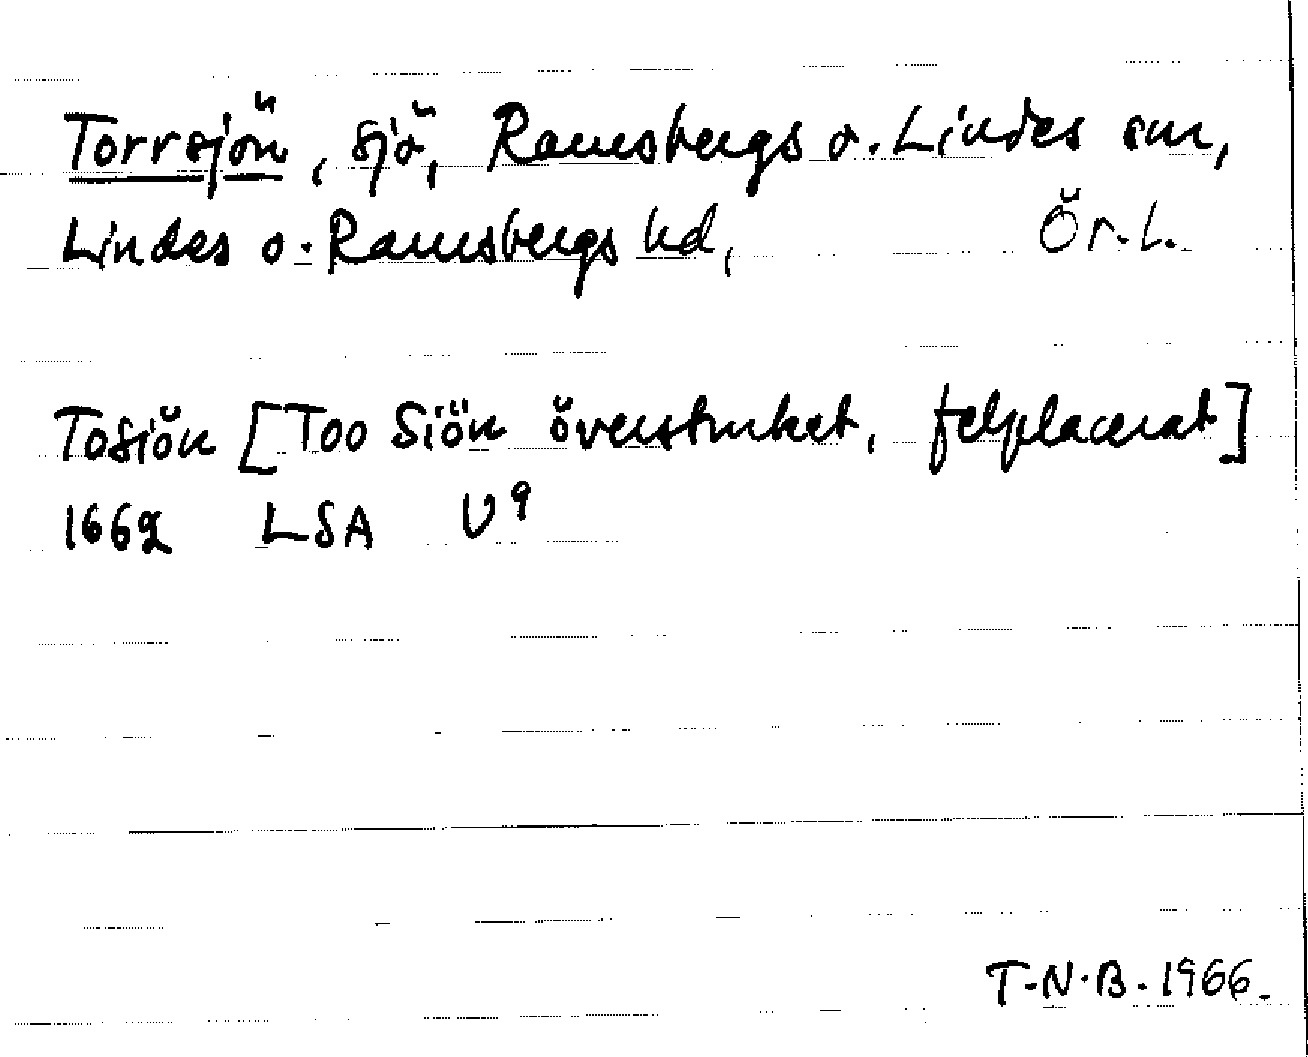 Torrsjön, sjö, Ramsbergs o. Lindes snr,
Lindes o. Ramsbergs hd, Ör. l.
Tosiön [Too Siön överstruket, felplacerat]
1662 LSA U9
T.N.B. 1966.